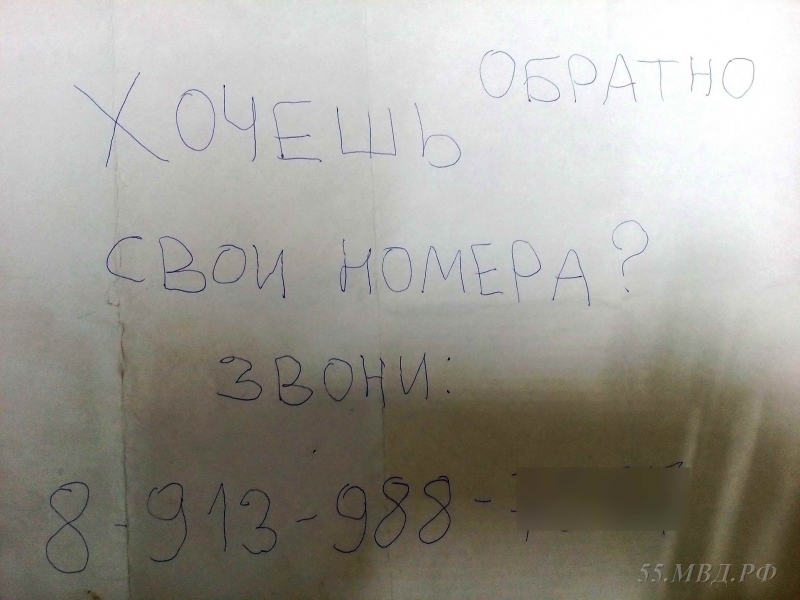 ХОЧЕШЬ ОБРАТНО
СВОИ НОМЕРА?
ЗВОНИ:
8-913-988-
55.МВД.РФ